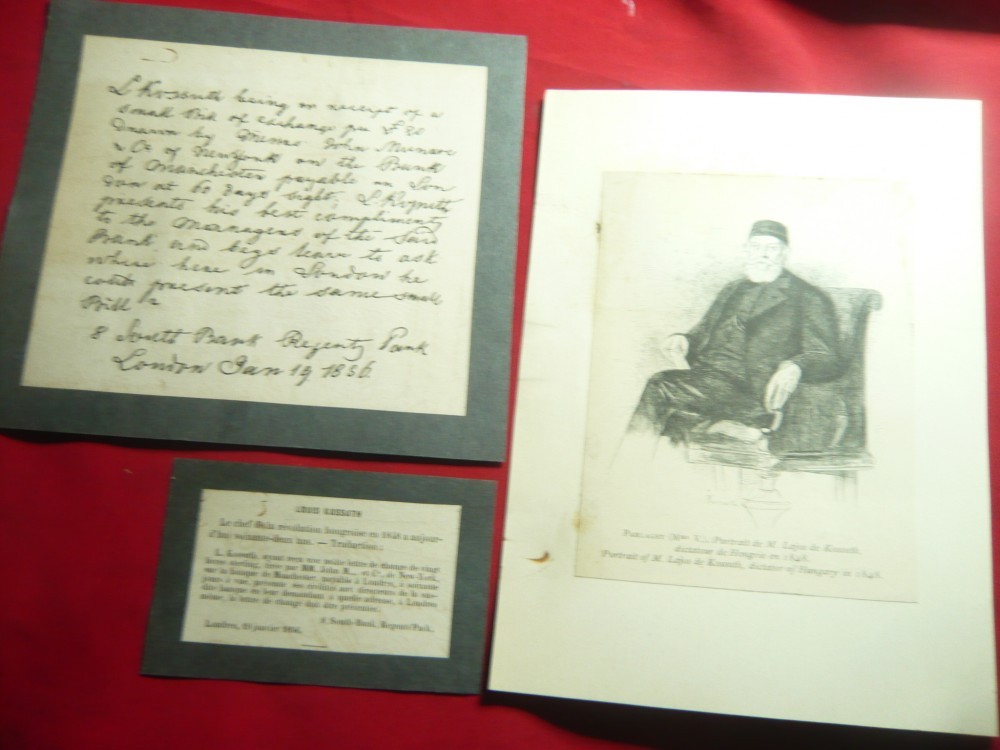 L Kossuth being in receipt of a
small Bill of exchange per £ 20
drawn by Messrs John Munroe
& Co of Newyork on the Bank
of Manchester payable in Lon
don at 60 days sight; L. Kossuth
presents his best compliments
to the Managers of the said
Bank, and begs leave to ask
where here in London he
could present the same small
Bill?
8 South Bank Regents Park
London Jan 19 1856.
LOUIS KOSSUTH
Le chef de la révolution hongroise en 1848 a aujour-
d'hui soixante-deux ans. — Traduction:
L. Kossuth, ayant reçu une petite lettre de change de vingt
livres sterling, tirée par MM. John M... et Cⁱᵉ, de New-York,
sur la banque de Manchester, payable à Londres, à soixante
jours à vue, présente ses civilités aux directeurs de la sus-
dite banque en leur demandant à quelle adresse, à Londres
même, la lettre de change doit être présentée.
8, South-Bank, Regent/Park.
Londres, 19 janvier 1856.
Parlaghy (Mme V.). Portrait de M. Lajos de Kossuth,
dictateur de Hongrie en 1848.
Portrait of M. Lajos de Kossuth, dictator of Hungary in 1848.